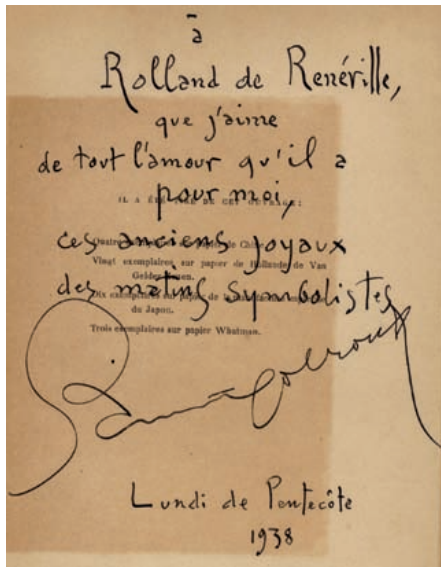 à
Rolland de Renéville,
que j'aime
de tout l'amour qu'il a
pour moi,
IL A ÉTÉ TIRÉ DE CET OUVRAGE :
ces anciens joyaux
Quatre exemplaires sur papier de Chine.
Vingt exemplaires sur papier de Hollande de Van
Gelder Zonen.
des matins symbolistes
Dix exemplaires sur papier de
du Japon.
Trois exemplaires sur papier Whatman.
Saint-Pol-Roux
Lundi de Pentecôte
1938